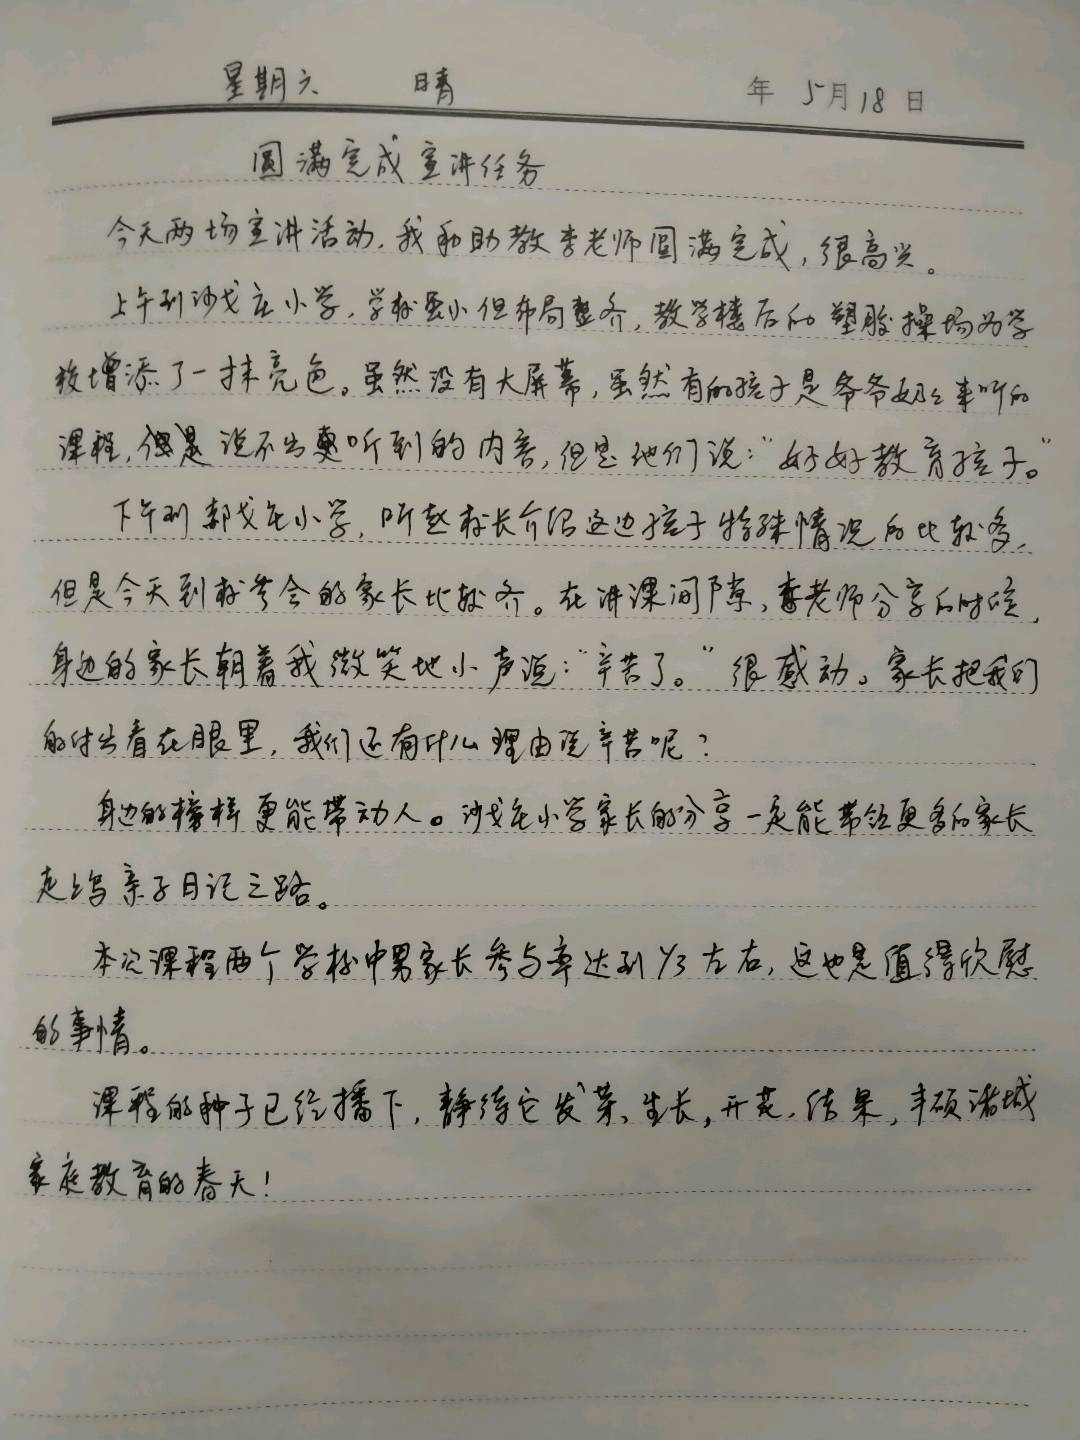 星期六 晴 年 5月18日
圆满完成宣讲任务
今天两场宣讲活动，我和助教李老师圆满完成，很高兴。
上午到沙戈庄小学，学校虽小但布局整齐，教学楼后的塑胶操场为学
校增添了一抹亮色。虽然没有大屏幕，虽然有的孩子是爷爷奶奶来听的
课程，但是说不出更听到的内容，但是他们说：“好好教育孩子。”
下午到郝戈庄小学，听赵校长介绍这边孩子特殊情况的比较多，
但是今天到校参会的家长比较齐。在讲课间隙，李老师分享的时候，
身边的家长朝着我微笑地小声说：“辛苦了。”很感动。家长把我们
的付出看在眼里，我们还有什么理由说辛苦呢？
身边的榜样更能带动人。沙戈庄小学家长的分享一定能带领更多的家长
走上写亲子日记之路。
本次课程两个学校中男家长参与率达到1/3左右，这也是值得欣慰
的事情。
课程的种子已经播下，静待它发芽、生长，开花、结果，丰硕诸城
家庭教育的春天！